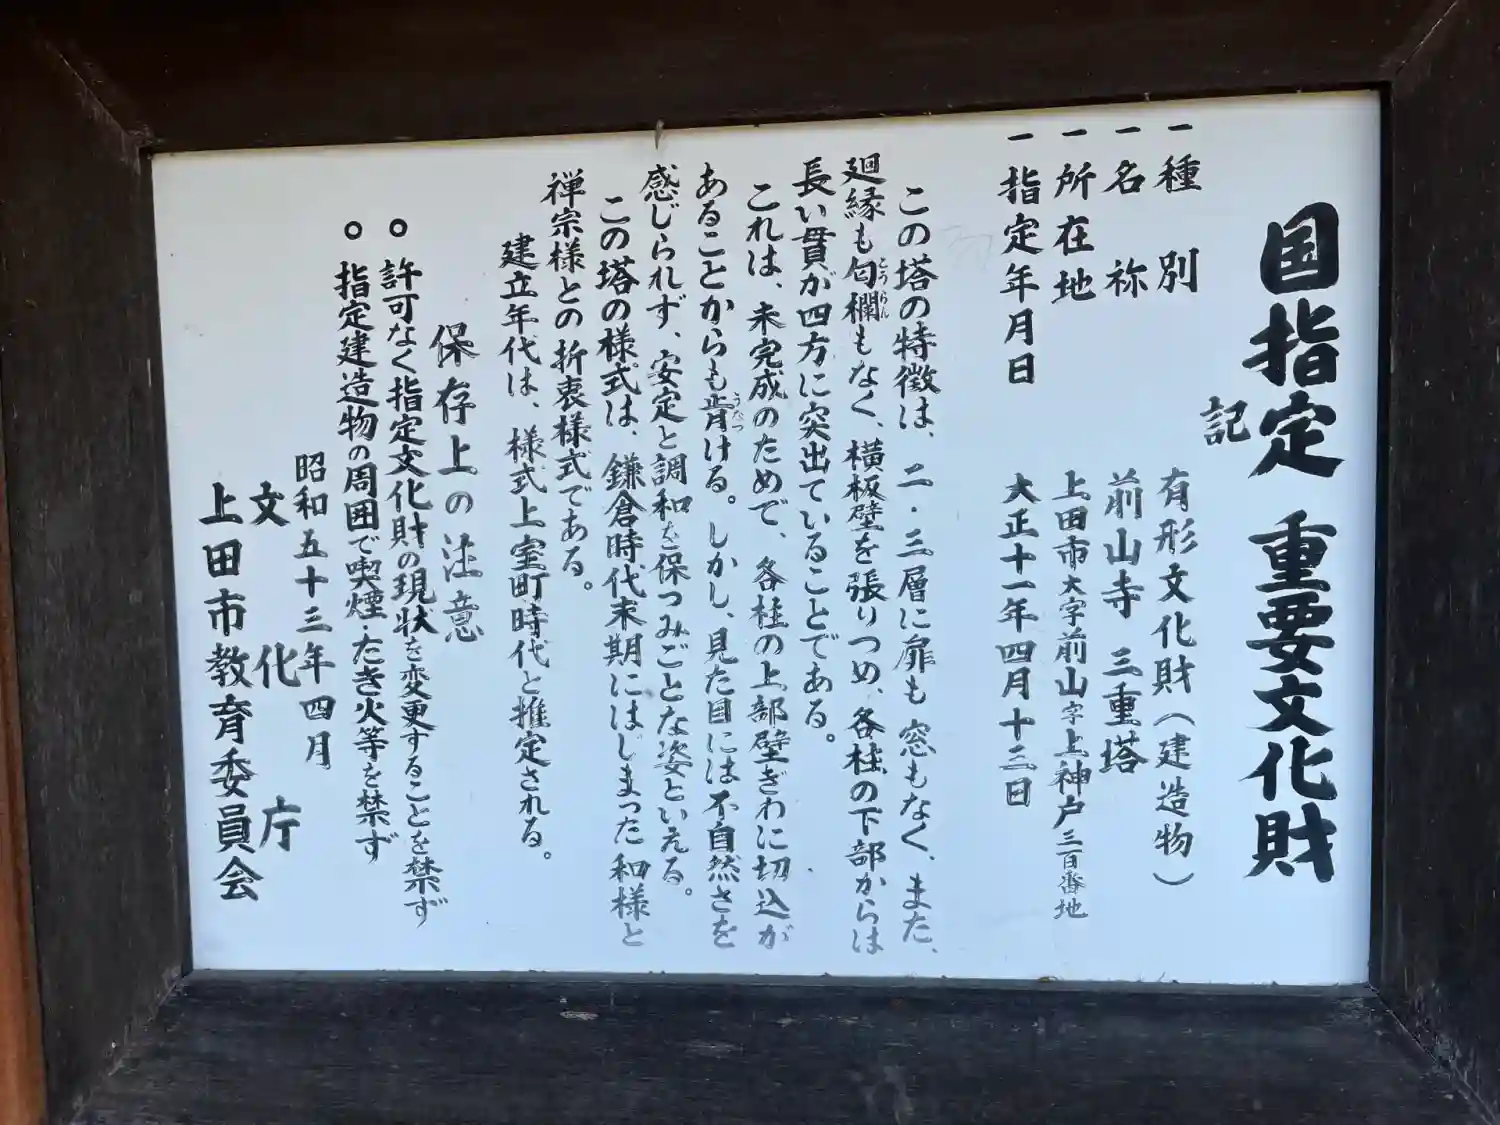 国指定 重要文化財
記
一種別 有形文化財(建造物)
一名祢 前山寺 三重塔
一所在地 上田市大字前山字上神戸三百番地
一指定年月日 大正十一年四月十三日
この塔の特徴は、二・三層に扉も窓もなく、また、
廻縁も匂欄もなく、横板壁を張りつめ、各柱の下部からは
とうらん
長い貫が四方に突出ていることである。
これは、未完成のためで、各柱の上部壁ぎわに切込が
あることからも肯ける。しかし、見た目には不自然さを
うなづ
感じられず、安定と調和を保つみごとな姿といえる。
この塔の様式は、鎌倉時代末期にはじまった和様と
禅宗様との折衷様式である。
建立年代は、様式上室町時代と推定される。
保存上の注意
○許可なく指定文化財の現状を変更することを禁ず
○指定建造物の周囲で喫煙・たき火等を禁ず
昭和五十三年四月
文化庁
上田市教育委員会